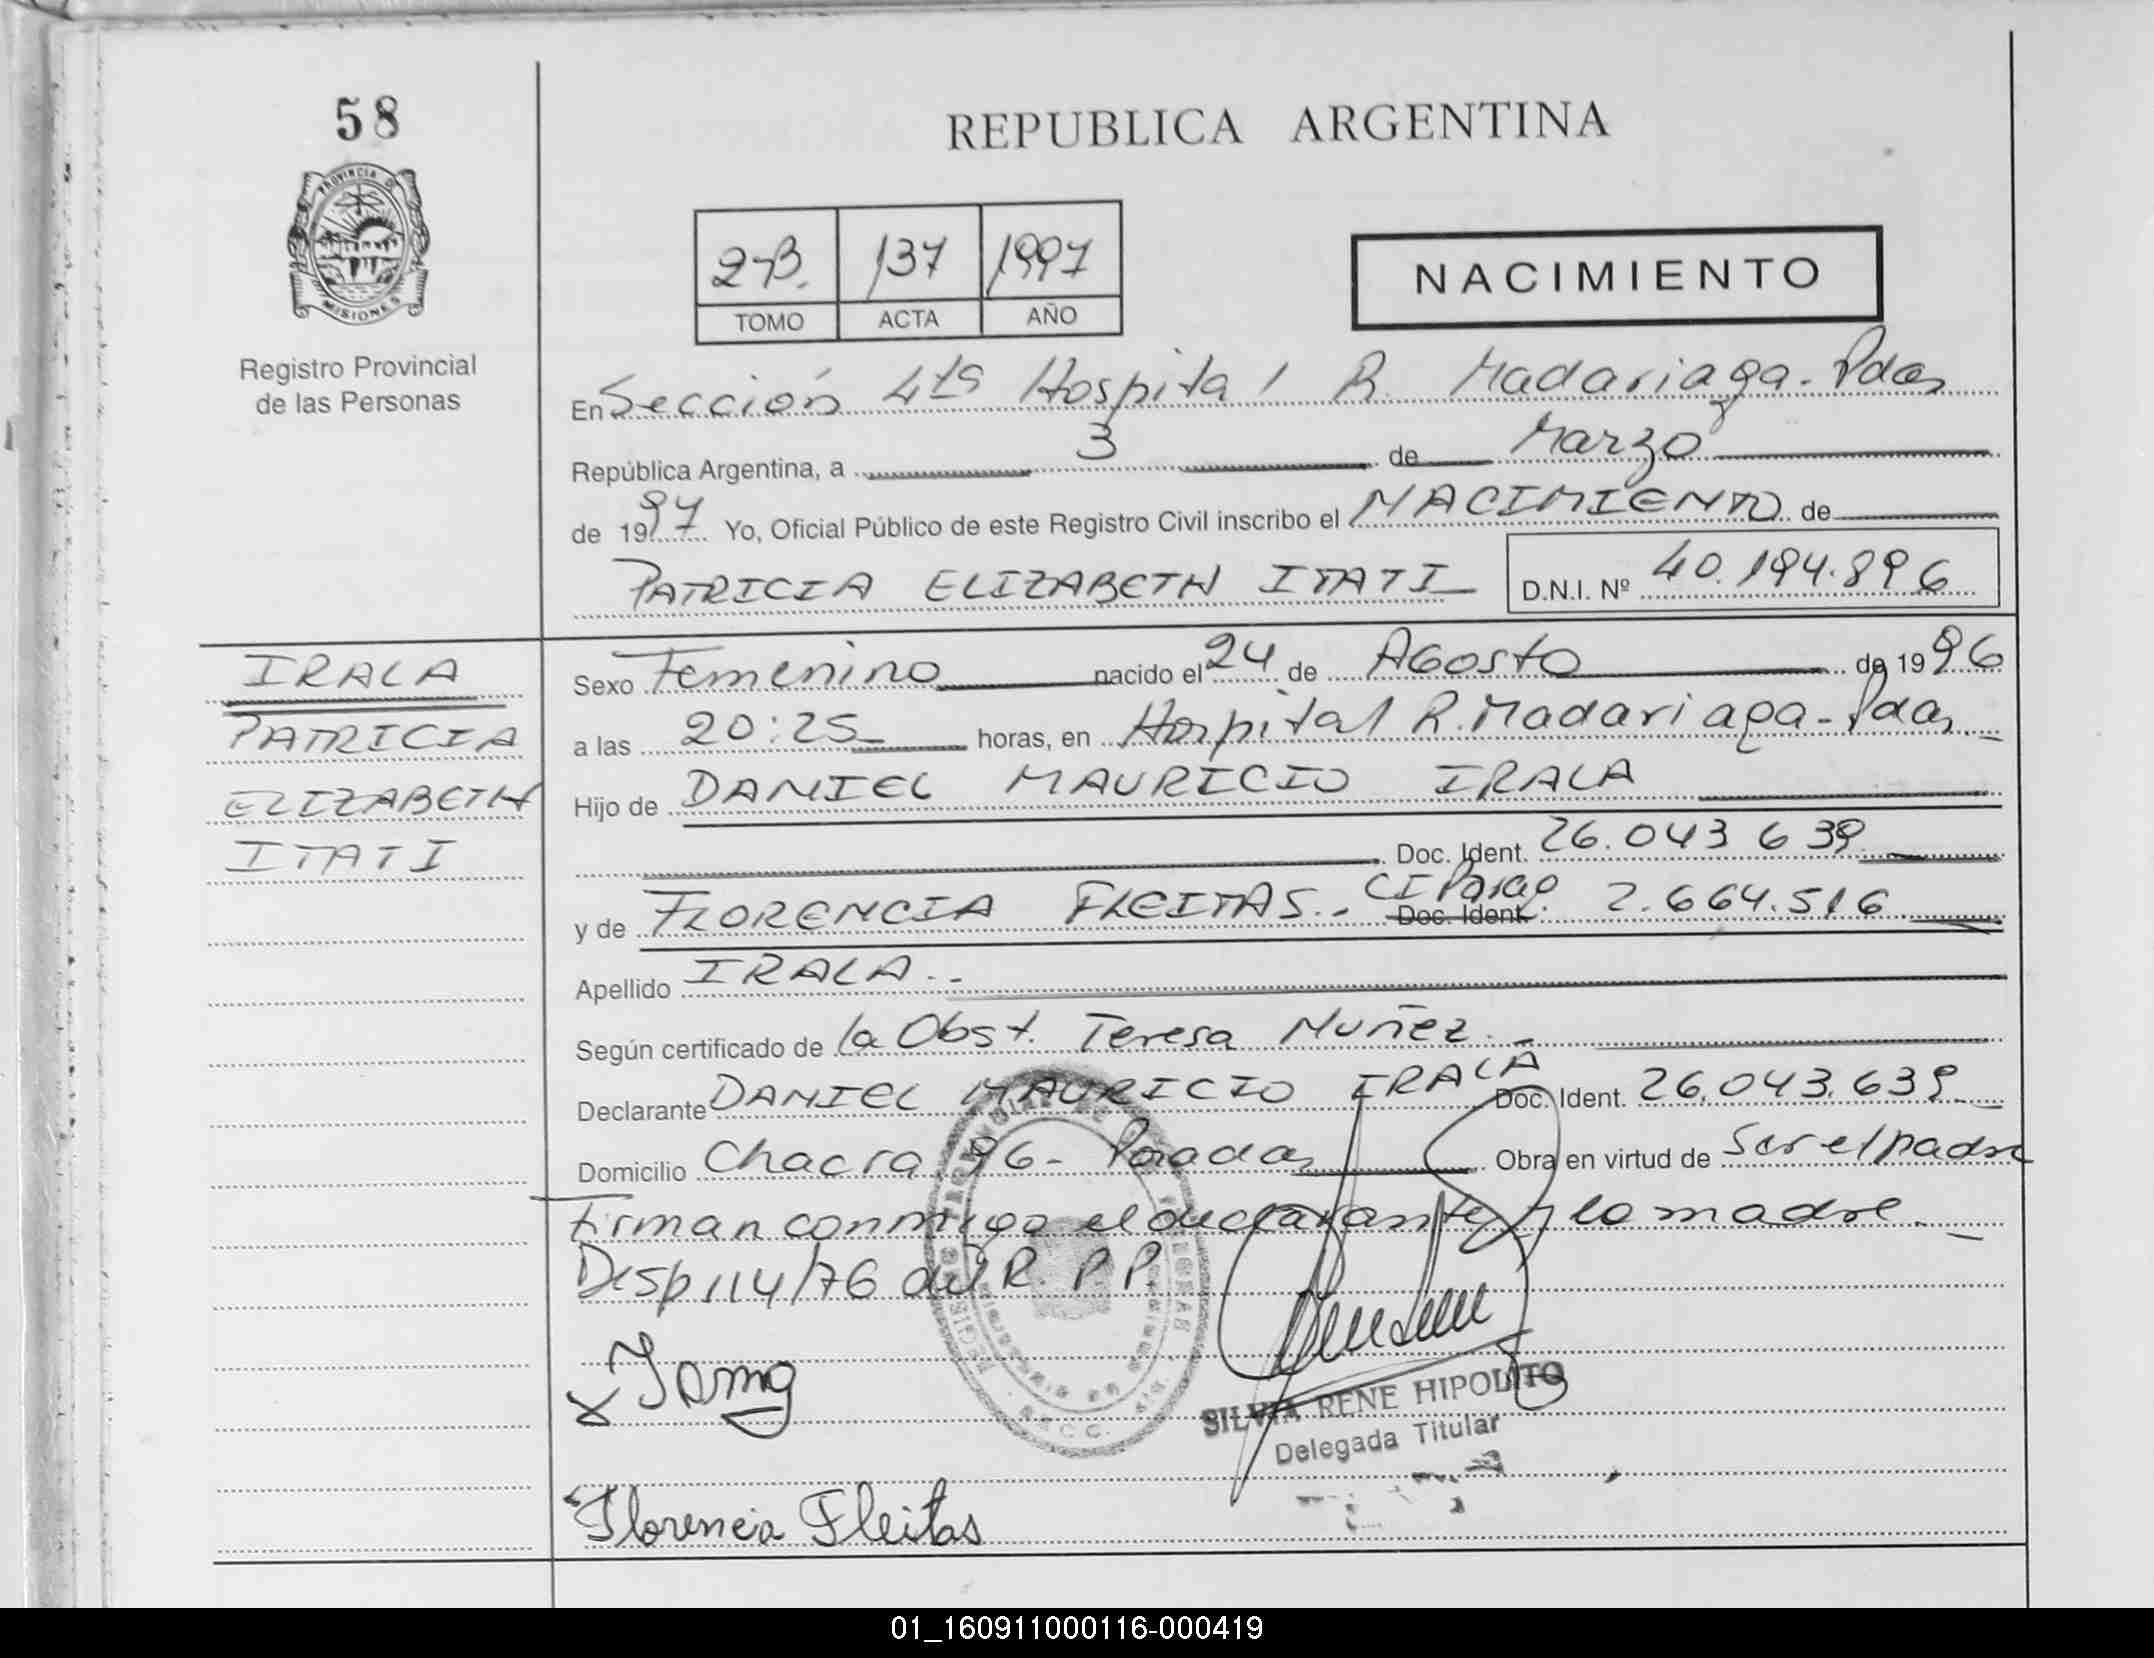 58
REPUBLICA ARGENTINA
PROVINCIA DE
MISIONES
Registro Provincial
de las Personas
2-B. 137 1997
TOMO ACTA AÑO
NACIMIENTO
En Sección 4ta Hospital R. Madariaga - Pdas
República Argentina, a 3 de Marzo
de 1997 Yo, Oficial Público de este Registro Civil inscribo el NACIMIENTO de
PATRICIA ELIZABETH ITATI D.N.I. Nº 40.194.896
IRALA
PATRICIA
ELIZABETH
ITATI
Sexo Femenino nacido el 24 de Agosto de 1996
a las 20:25 horas, en Hospital R. Madariaga - Pdas
Hijo de DANIEL MAURICIO IRALA
Doc. Ident. 26.043 639
y de FLORENCIA FLEITAS.- CI Parag Doc. Ident. 2.664.516
Apellido IRALA.-
Según certificado de la Obst. Teresa Nuñez.-
Declarante DANIEL MAURICIO IRALA Doc. Ident. 26.043.639
Domicilio Chacra 96 - Posadas Obra en virtud de Ser el padre
Firman conmigo el declarante y la madre.
Disp 114/76 del R. P P.
SILVIA RENE HIPOLITO
Delegada Titular
Florencia Fleitas
01_160911000116-000419